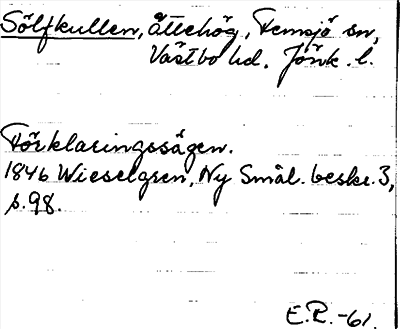 Sölfkullen, ättehög, Femsjö sn,
Västbo hd. Jönk. l.
Förklaringssägen.
1846 Wieselgren, Ny Smål. beskr. 3,
s. 98.
E.R. -61.